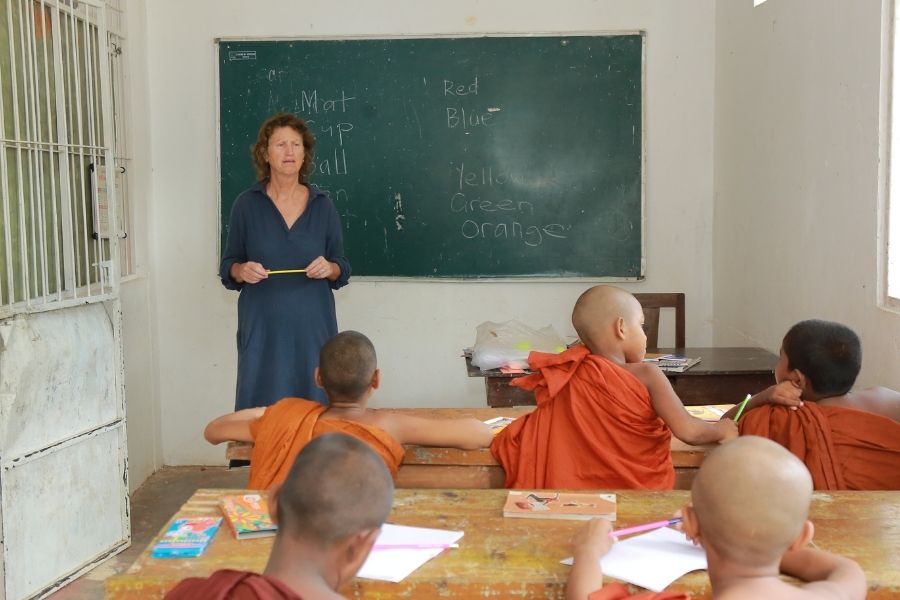 Mat
Cup
Ball
Red
Blue
Yellow
Green
Orange